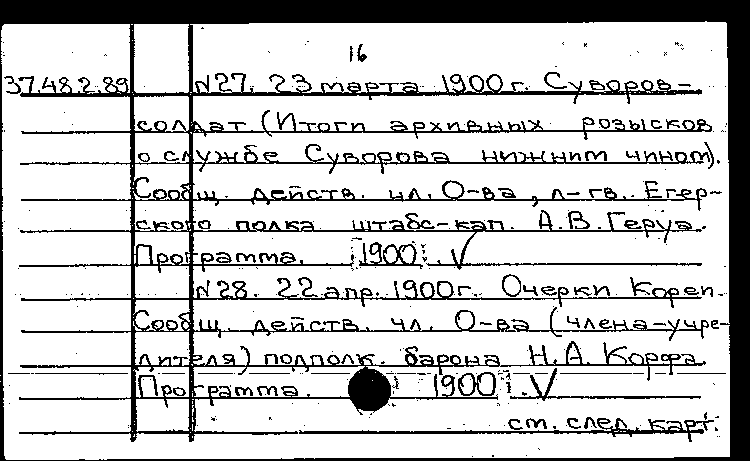 16
37.48.2.89 N27. 23 марта 1900г. Суворов-
солдат (Итоги архивных розысков
о службе Суворова нижним чином).
Сообщ. действ. чл. О-ва, л-гв. Егер-
ского полка штабс-кап. А.В. Геруа.
Программа. [1900]. ✓
N28. 22 апр. 1900г. Очерки Кореи.
Сообщ. действ. чл. О-ва (члена-учре-
дителя) подполк. барона Н.А. Корфа.
Программа. [1900]. ✓
см. след. карт.